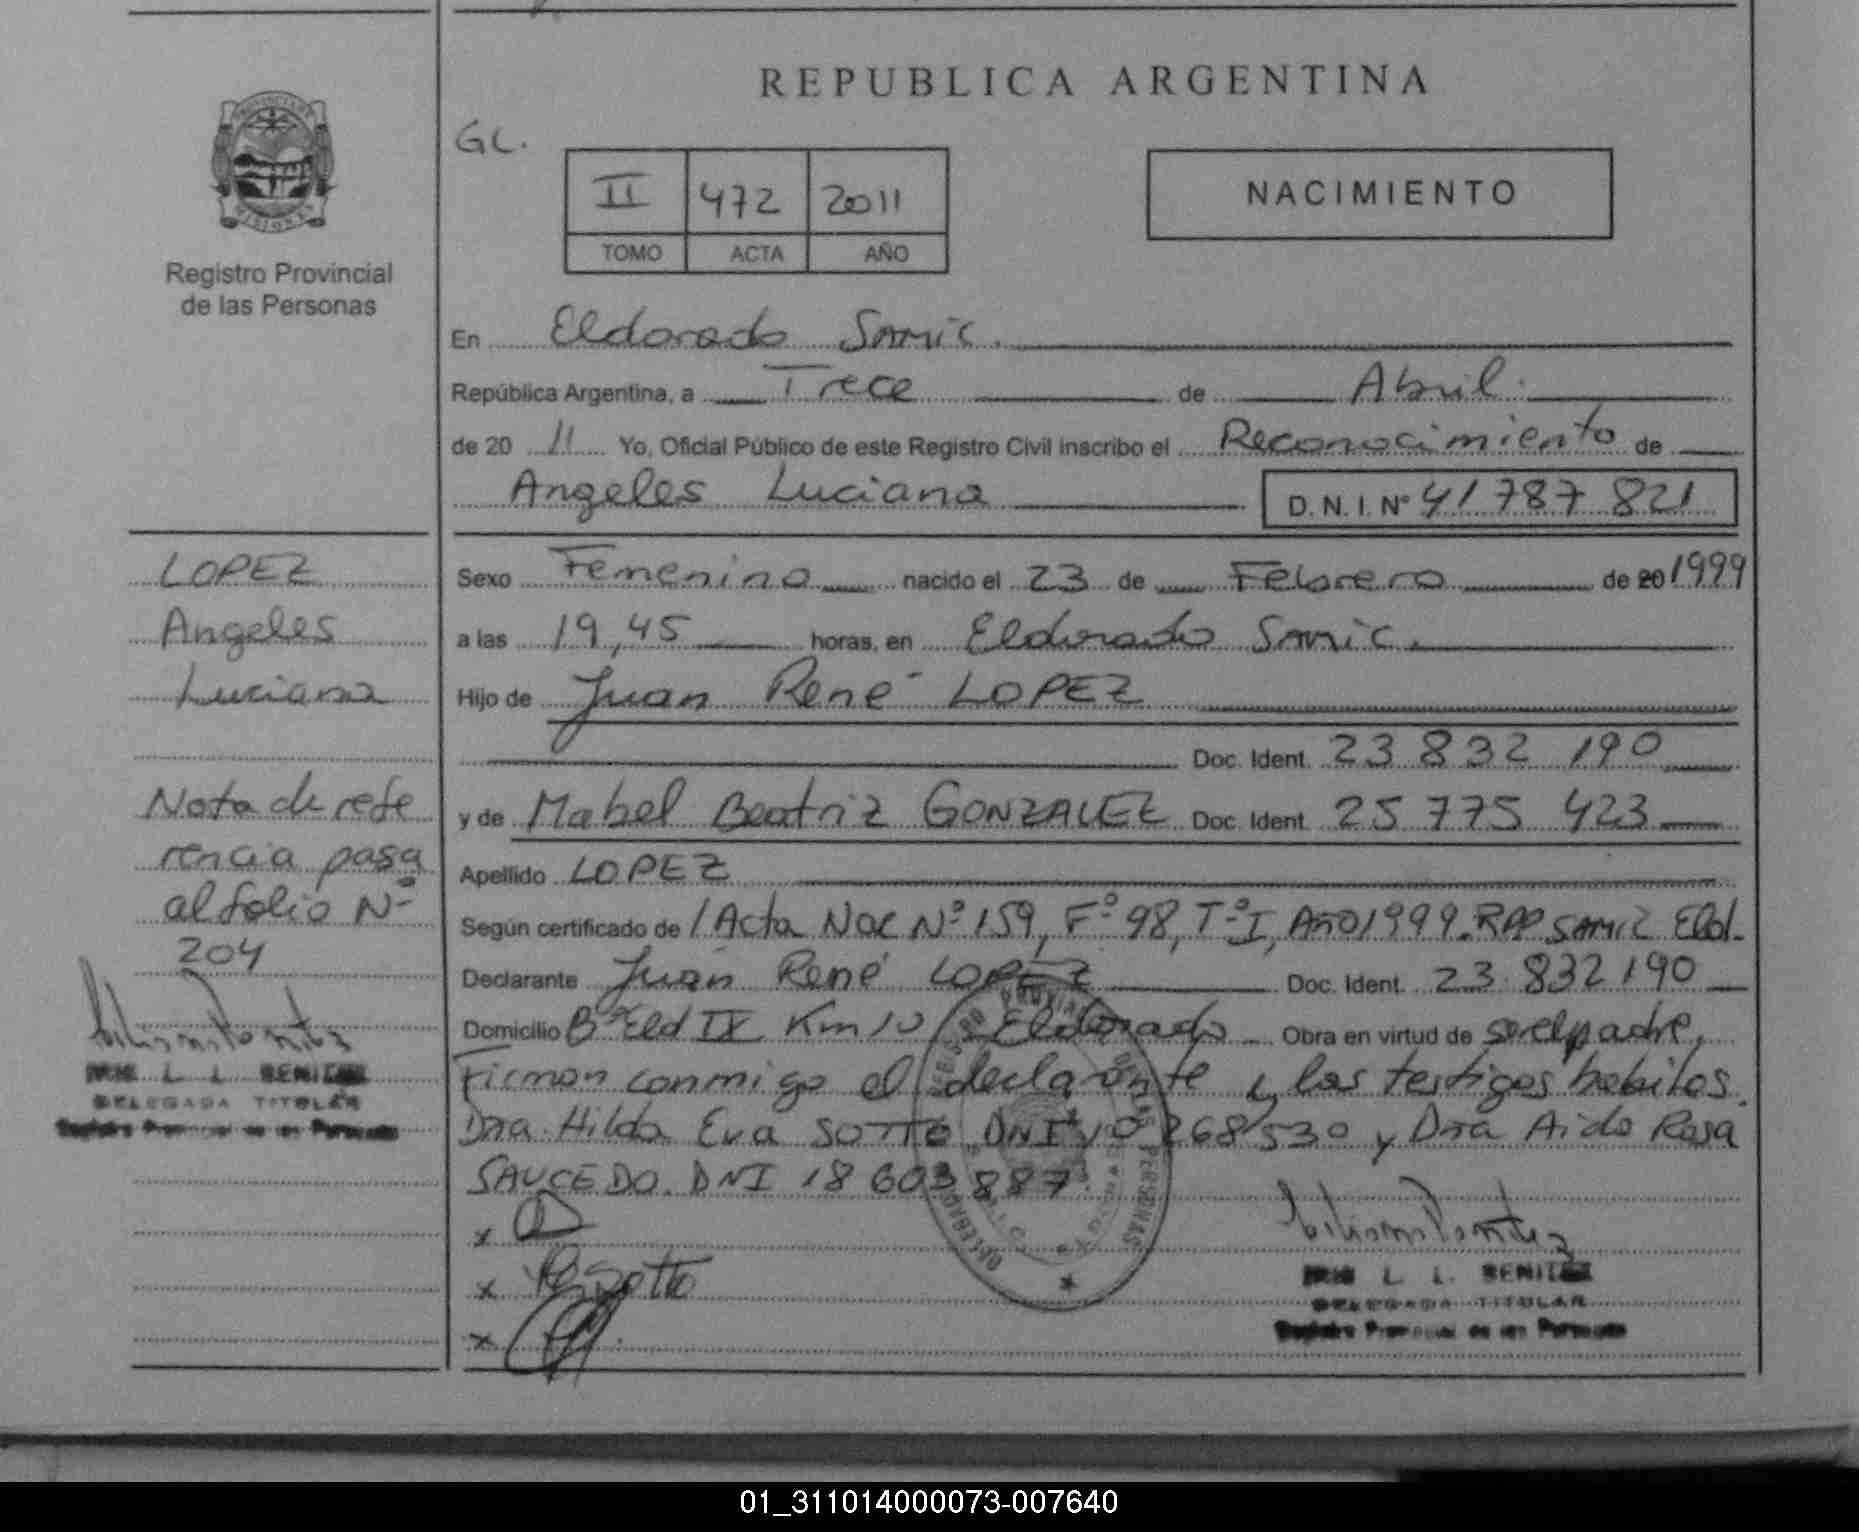 REPUBLICA ARGENTINA
GC.
II 472 2011
TOMO ACTA AÑO
NACIMIENTO
Registro Provincial
de las Personas
En Eldorado Samic.
República Argentina, a Trece de Abril
de 20 11 Yo, Oficial Público de este Registro Civil inscribo el Reconocimiento de
Angeles Luciana D. N. I. Nº 41 787 821
LOPEZ
Angeles
Luciana
Nota de refe
rencia pasa
al folio Nº
204
L. L. BENITEZ
DELEGADA TITULAR
Registro Provincial de las Personas
Sexo Femenino nacido el 23 de Febrero de 20 1999
a las 19,45 horas, en Eldorado Samic.
Hijo de Juan René LOPEZ
Doc. Ident. 23 832 190
y de Mabel Beatriz GONZALEZ Doc. Ident. 25 775 423
Apellido LOPEZ
Según certificado de / Acta Nac Nº 159, Fº 98, Tº I, Año 1999. RPP SAMIC Eld.
Declarante Juan René LOPEZ Doc. Ident. 23 832 190
Domicilio Bº Eld IX Km 10 Eldorado Obra en virtud de ser el padre.
Firman conmigo el declarante y los testigos habiles.
Dra Hilda Eva SOTTO DNI 10 268 530 y Dra Aida Rosa
SAUCEDO. DNI 18 603 887.
x
x
x
L. L. BENITEZ
DELEGADA TITULAR
Registro Provincial de las Personas
01_311014000073-007640